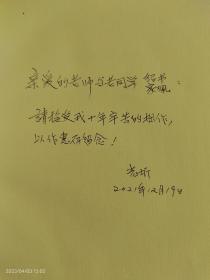 亲爱的老师与老同学
請接受我十年辛苦的拙作，
以作惠存留念！
2021年12月19日
2023/04/03 13:02